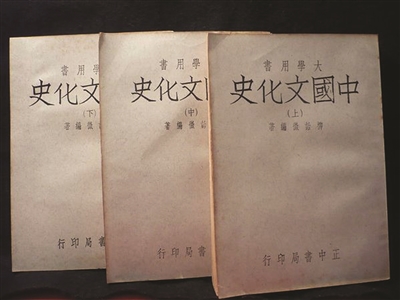 大學用書
中國文化史
(上)
柳詒徵編著
正中書局印行
學用書
文化史
(中)
徵編著
書局印行
學用書
文化史
(下)
徵編著
書局印行